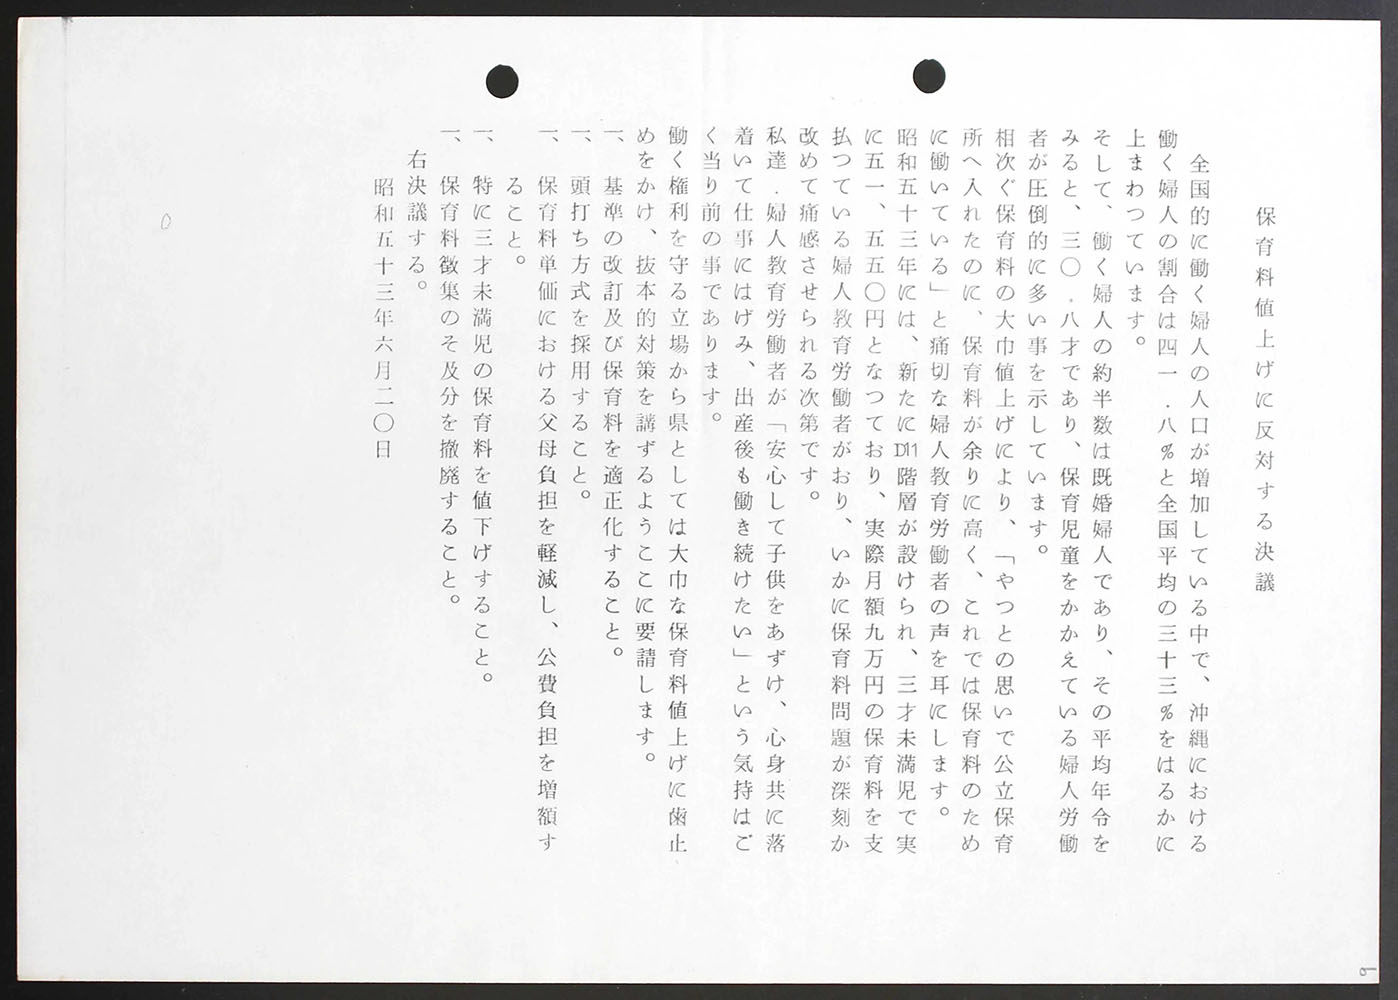 保育料値上げに反対する決議
全国的に働く婦人の人口が増加している中で、沖縄における
働く婦人の割合は四一．八％と全国平均の三十三％をはるかに
上まわつています。
そして、働く婦人の約半数は既婚婦人であり、その平均年令を
みると、三〇．八才であり、保育児童をかかえている婦人労働
者が圧倒的に多い事を示しています。
相次ぐ保育料の大巾値上げにより、「やつとの思いで公立保育
所へ入れたのに、保育料が余りに高く、これでは保育料のため
に働いている」と痛切な婦人教育労働者の声を耳にします。
昭和五十三年には、新たにD11階層が設けられ、三才未満児で実
に五一、五五〇円となつており、実際月額九万円の保育料を支
払つている婦人教育労働者がおり、いかに保育料問題が深刻か
改めて痛感させられる次第です。
私達．婦人教育労働者が「安心して子供をあずけ、心身共に落
着いて仕事にはげみ、出産後も働き続けたい」という気持はご
く当り前の事であります。
働く権利を守る立場から県としては大巾な保育料値上げに歯止
めをかけ、抜本的対策を講ずるようここに要請します。
一、基準の改訂及び保育料を適正化すること。
一、頭打ち方式を採用すること。
一、保育料単価における父母負担を軽減し、公費負担を増額す
ること。
一、特に三才未満児の保育料を値下げすること。
一、保育料徴集のそ及分を撤廃すること。
右決議する。
昭和五十三年六月二〇日
9